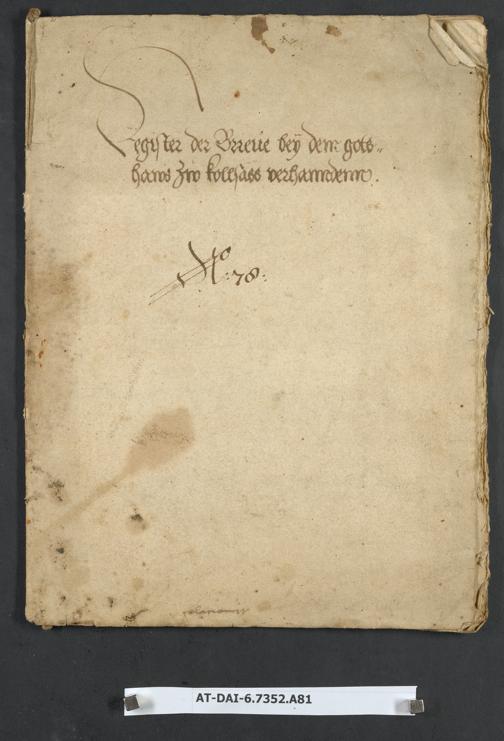 Register der Brieue beÿ dem gots-
haws zw kollsass verhanndenn.
No: 78:
AT-DAI-6.7352.A81